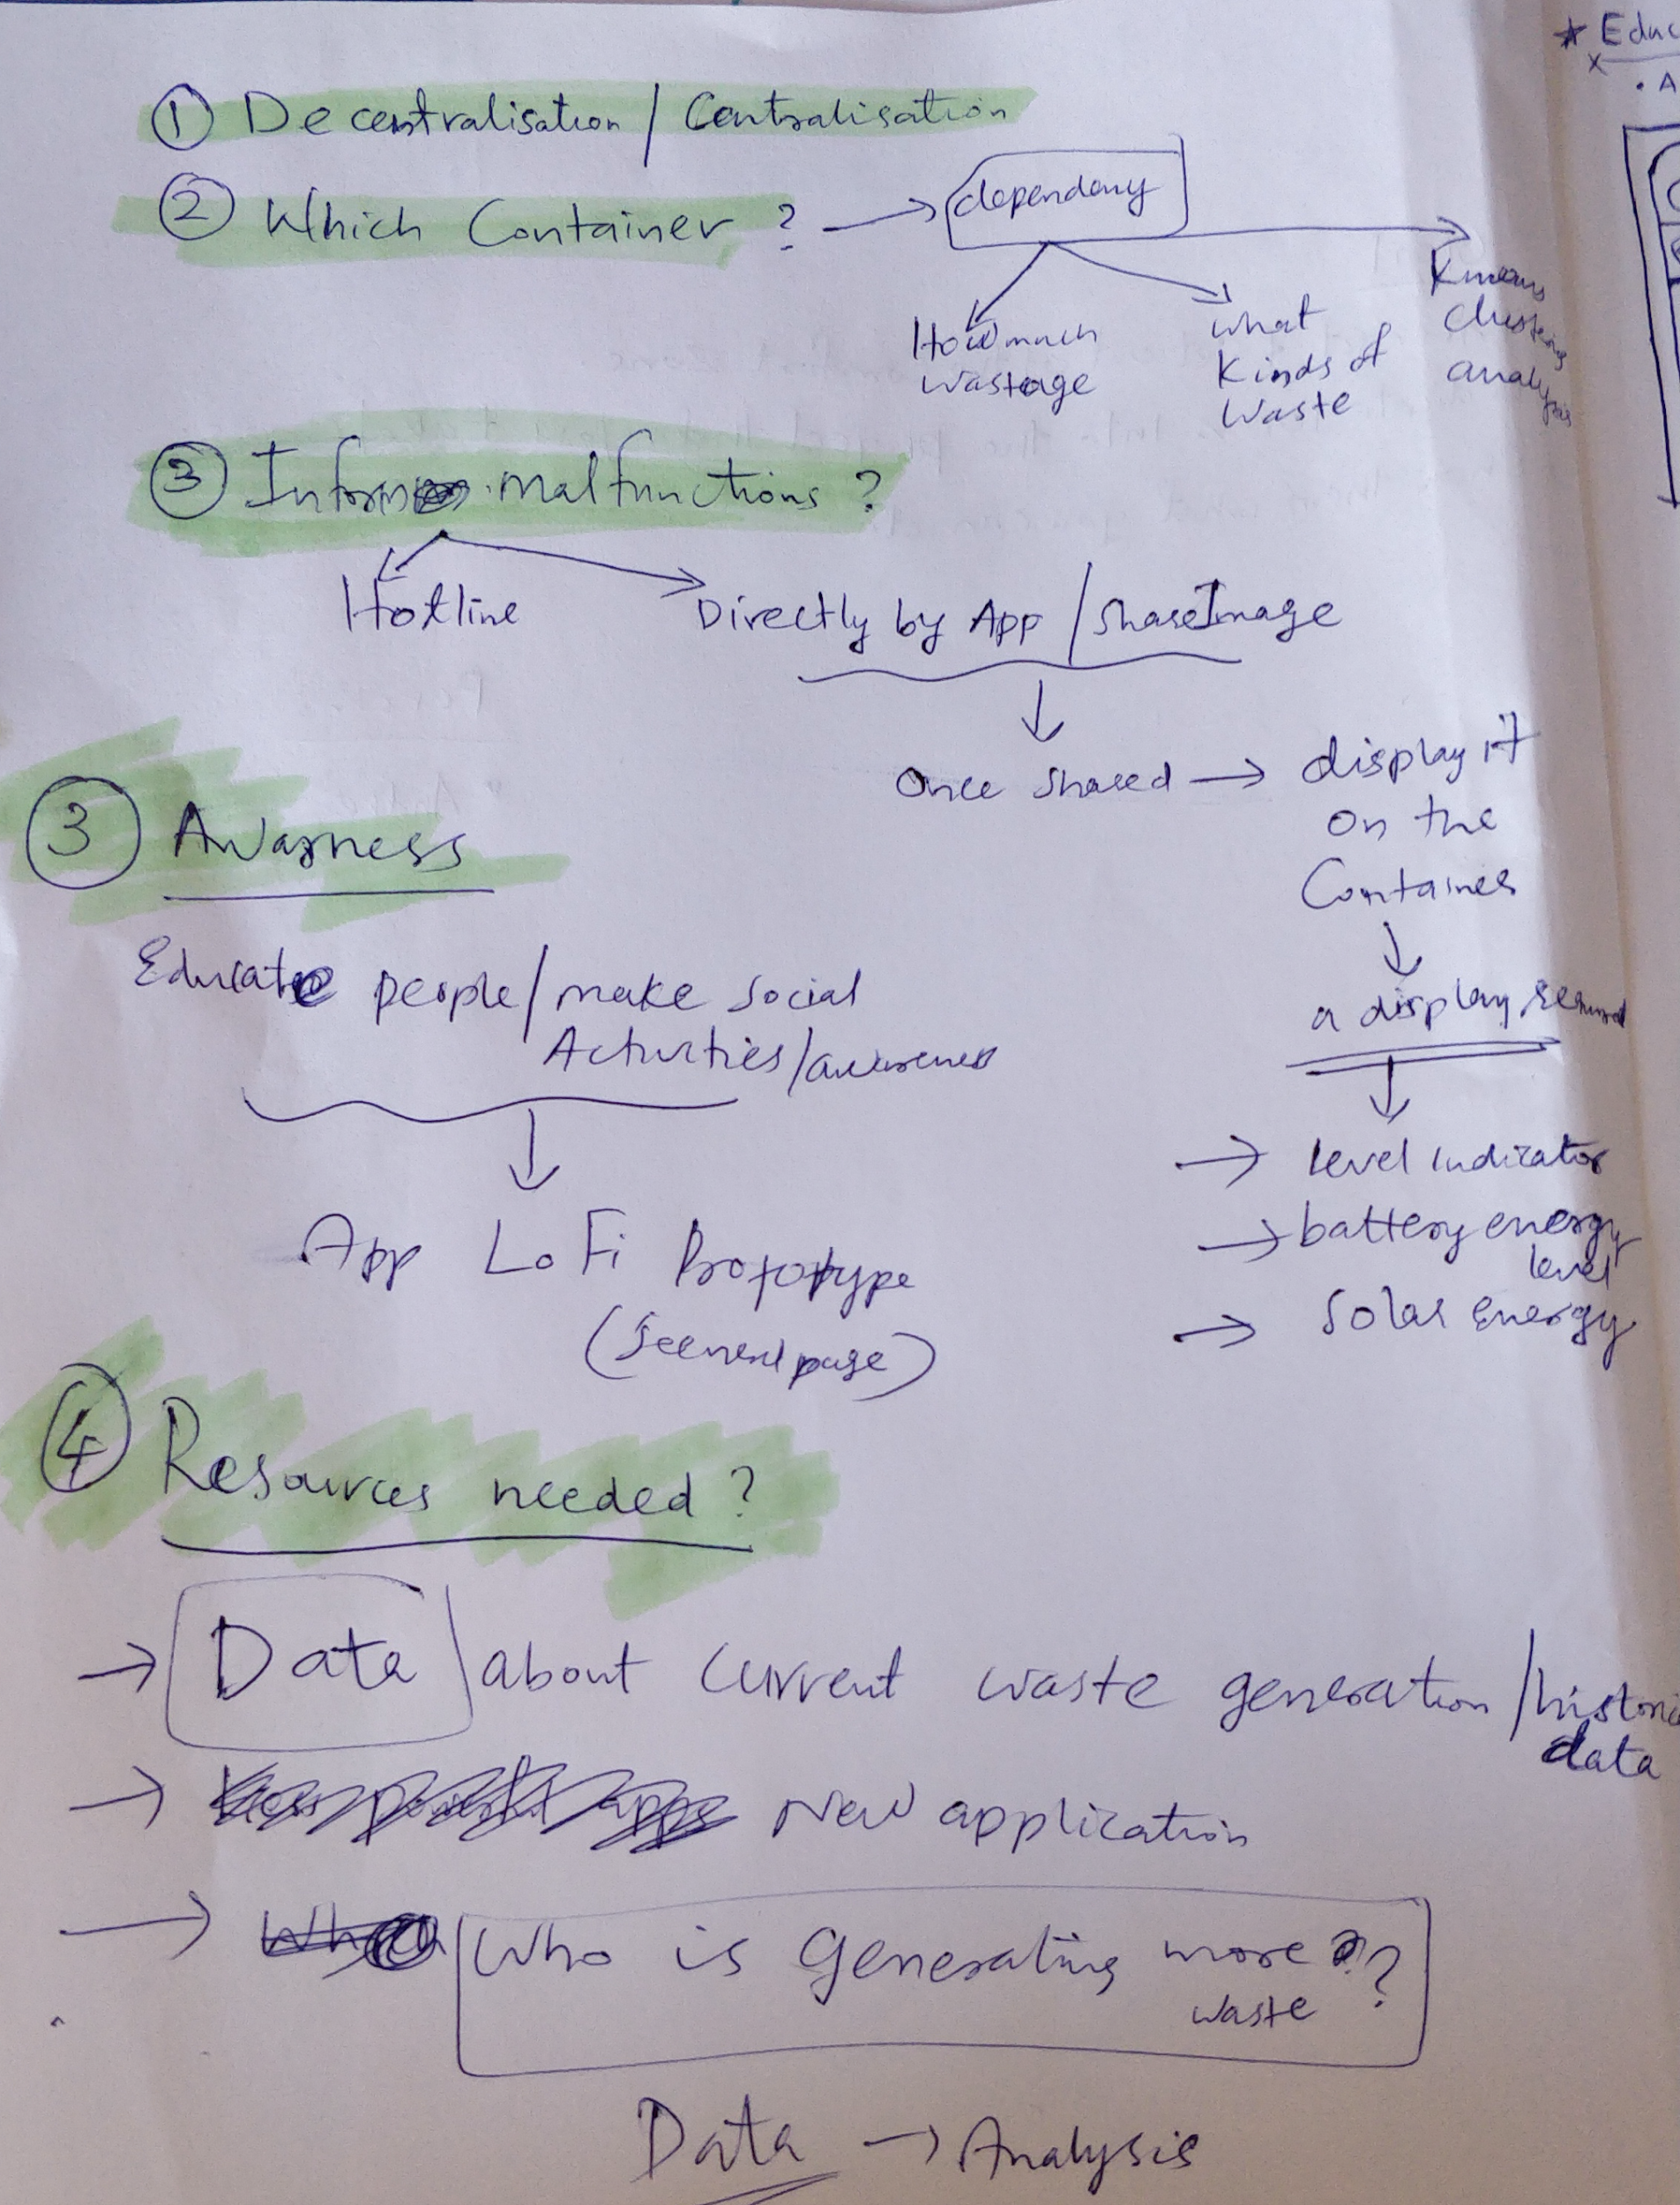 ① Decentralisation / Centralisation
② Which Container ? → dependany
How much wastage
what Kinds of waste
Kmeans clustering analysis
③ Inform malfunctions ?
Hotline
Directly by App / Share Image
Once Shared → display it
on the
Container
a display
→ level indicator
→ battery energy
level
→ Solar Energy
③ Awarness
Educate people / make Social
Activities / awareness
App LoFi Prototype
(See next page)
④ Resources needed ?
→ Data about current waste generation /
data
→ New application
→ Who is Generating more ?
waste
Data → Analysis
* Educ
x
• A